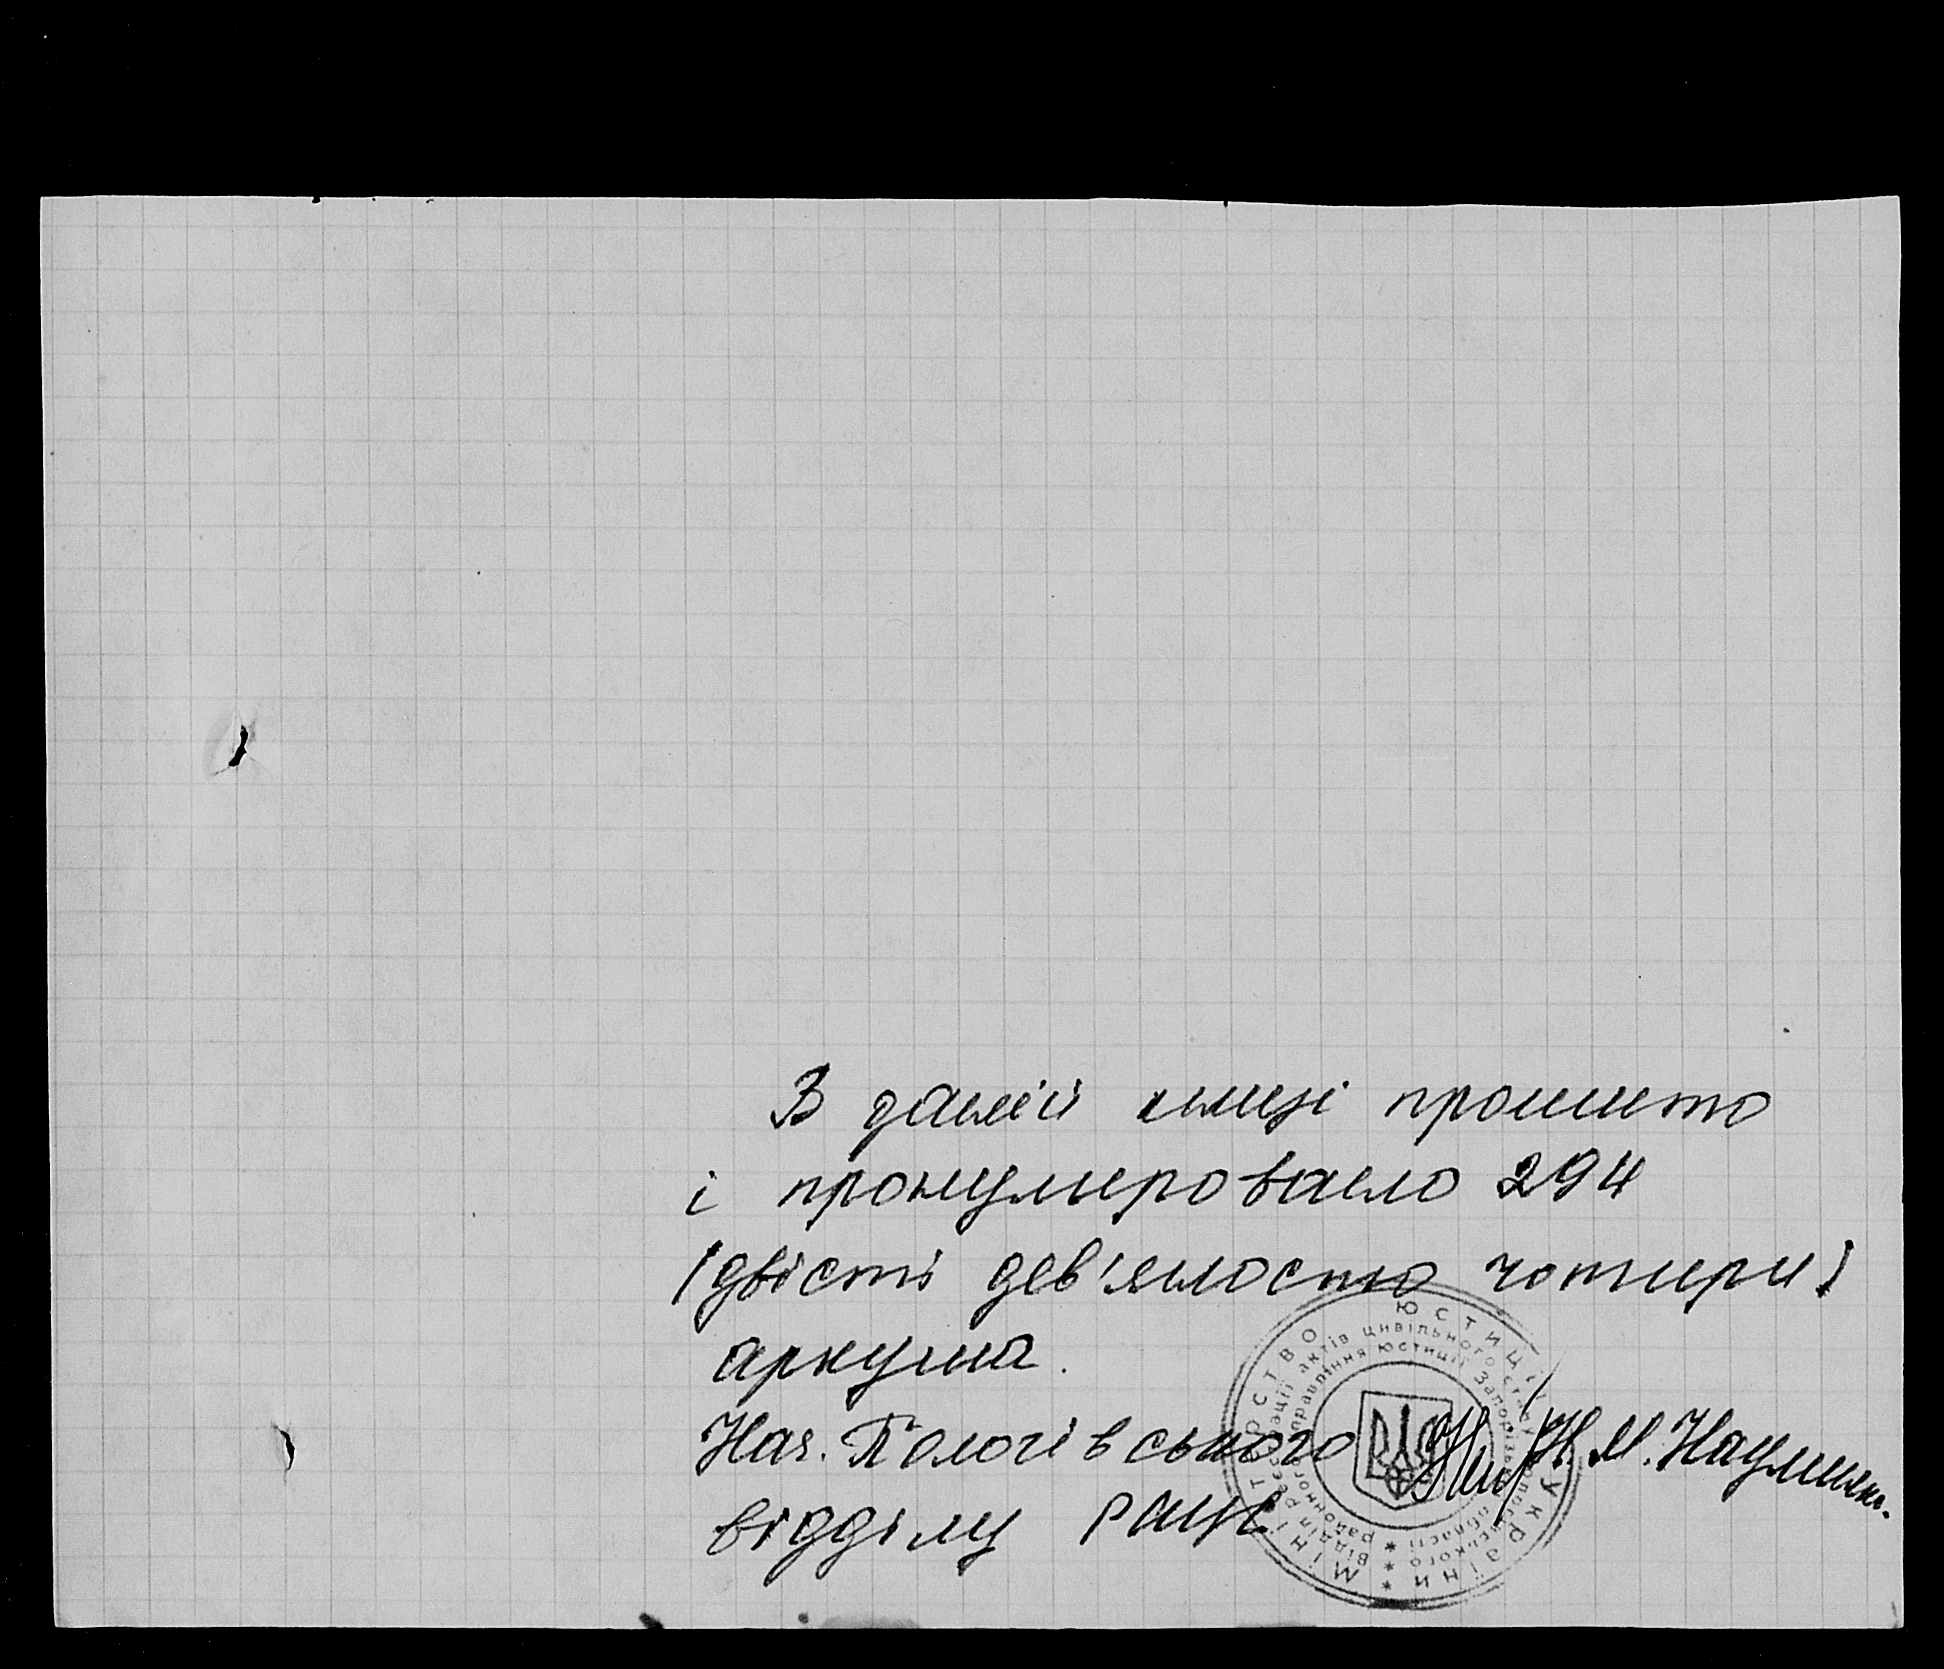 В даній книзі прошито
і пронумеровано 294
(двісті дев'яносто чотири)
аркуша.
Нач. Пологівського Н.М. Науменко.
відділу РАЦС
МІНІСТЕРСТВО ЮСТИЦІЇ УКРАЇНИ
Відділ реєстрації актів цивільного стану Пологівського
районного управління юстиції Запорізької області